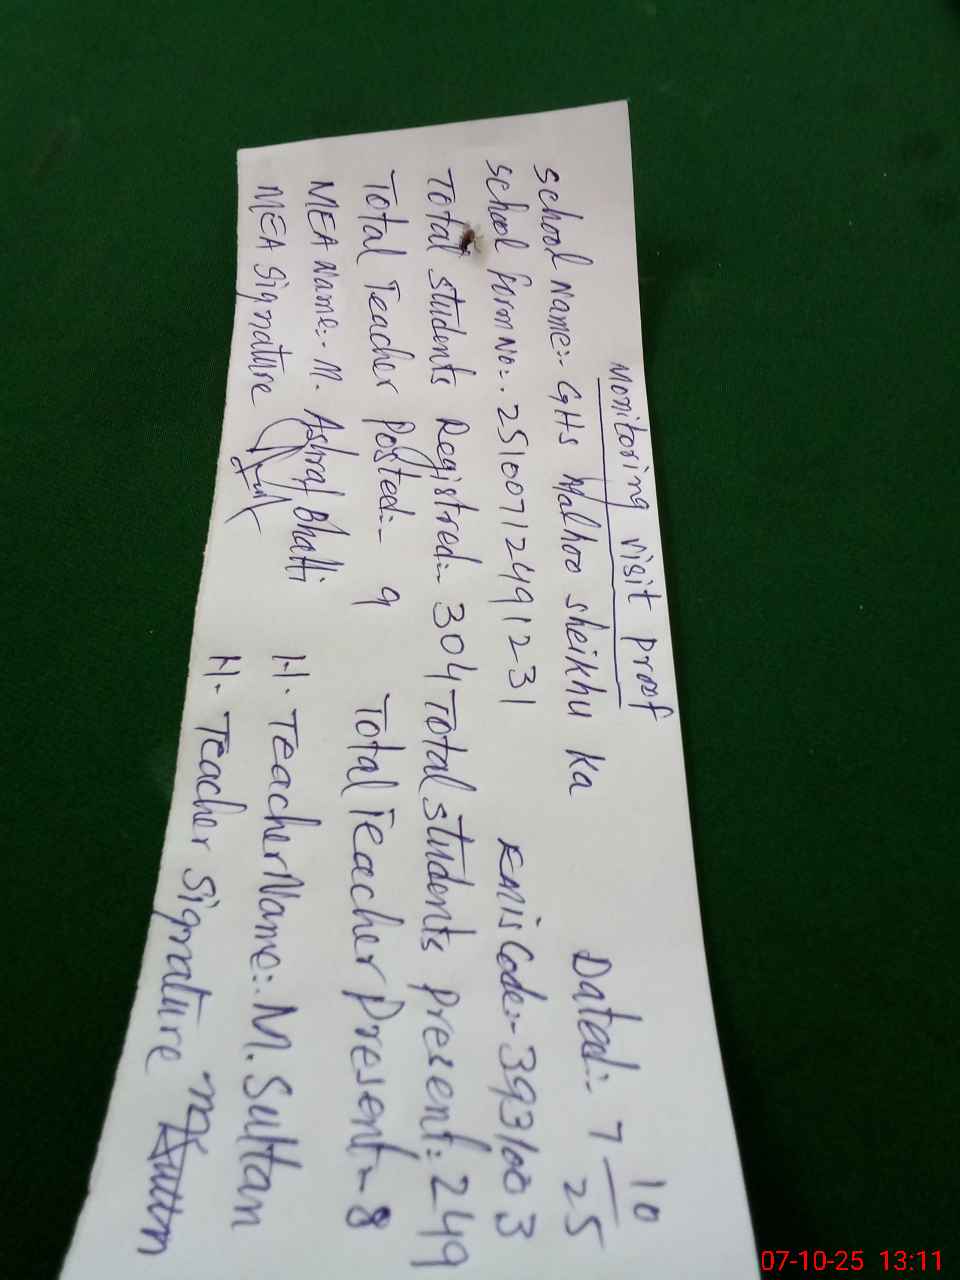 Monitoring visit proof
School name:- GHS Malhoo sheikhu ka Dated:- 7 10/25
School form No:- 25100712491231 EMIS Code:- 3931003
Total students Registred:- 304 Total students present: 249
Total Teacher Posted:- 9 Total Teacher Present - 8
MEA Name:- M. Ashraf Bhatti H. Teacher Name:- M. Sultan
MEA Signature H. Teacher Signature
07-10-25 13:11